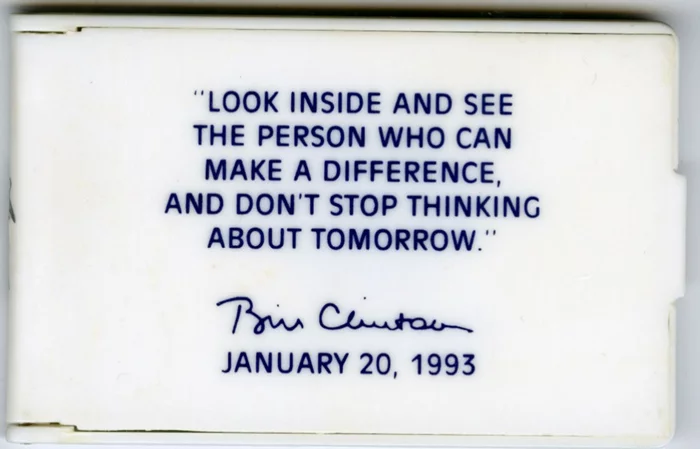 "LOOK INSIDE AND SEE
THE PERSON WHO CAN
MAKE A DIFFERENCE,
AND DON'T STOP THINKING
ABOUT TOMORROW."
Bill Clinton
JANUARY 20, 1993